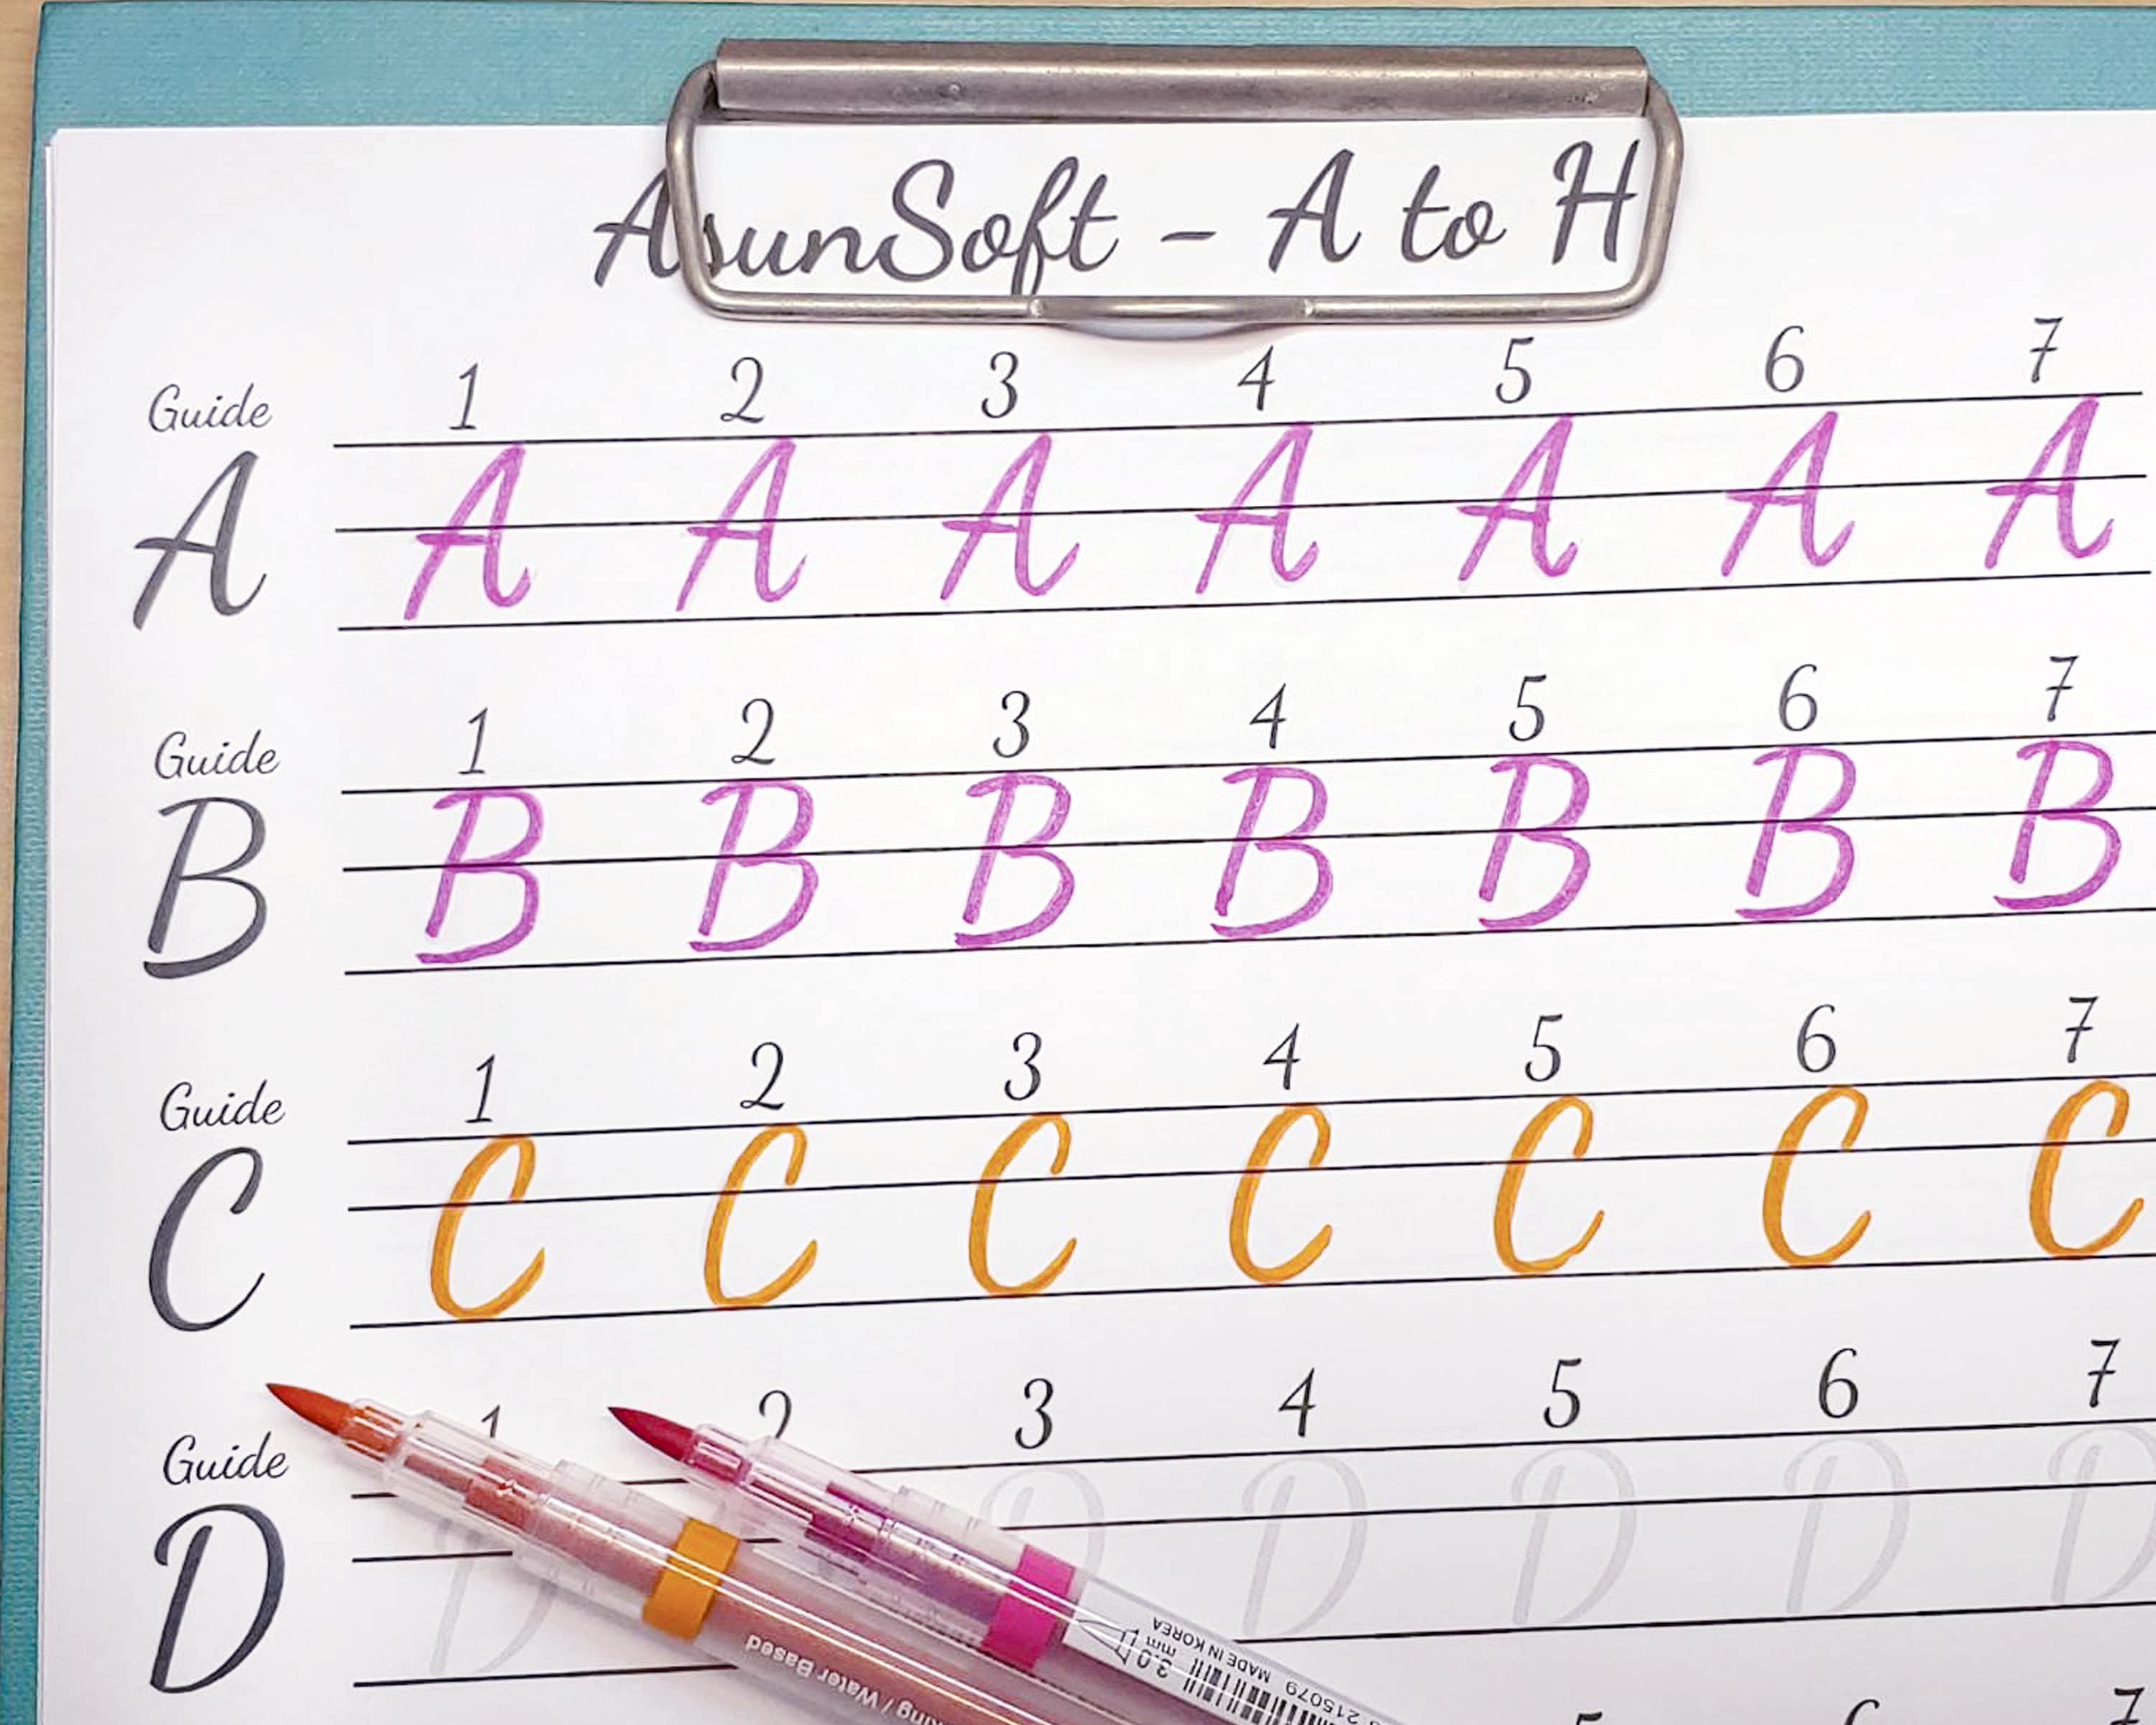 AsunSoft - A to H
Guide 1 2 3 4 5 6 7
A A A A A A A A
Guide 1 2 3 4 5 6 7
B B B B B B B B
Guide 1 2 3 4 5 6 7
C C C C C C C C
Guide 1 2 3 4 5 6 7
D D D D D D D
Water Based
3.0 mm
MADE IN KOREA
215079
7